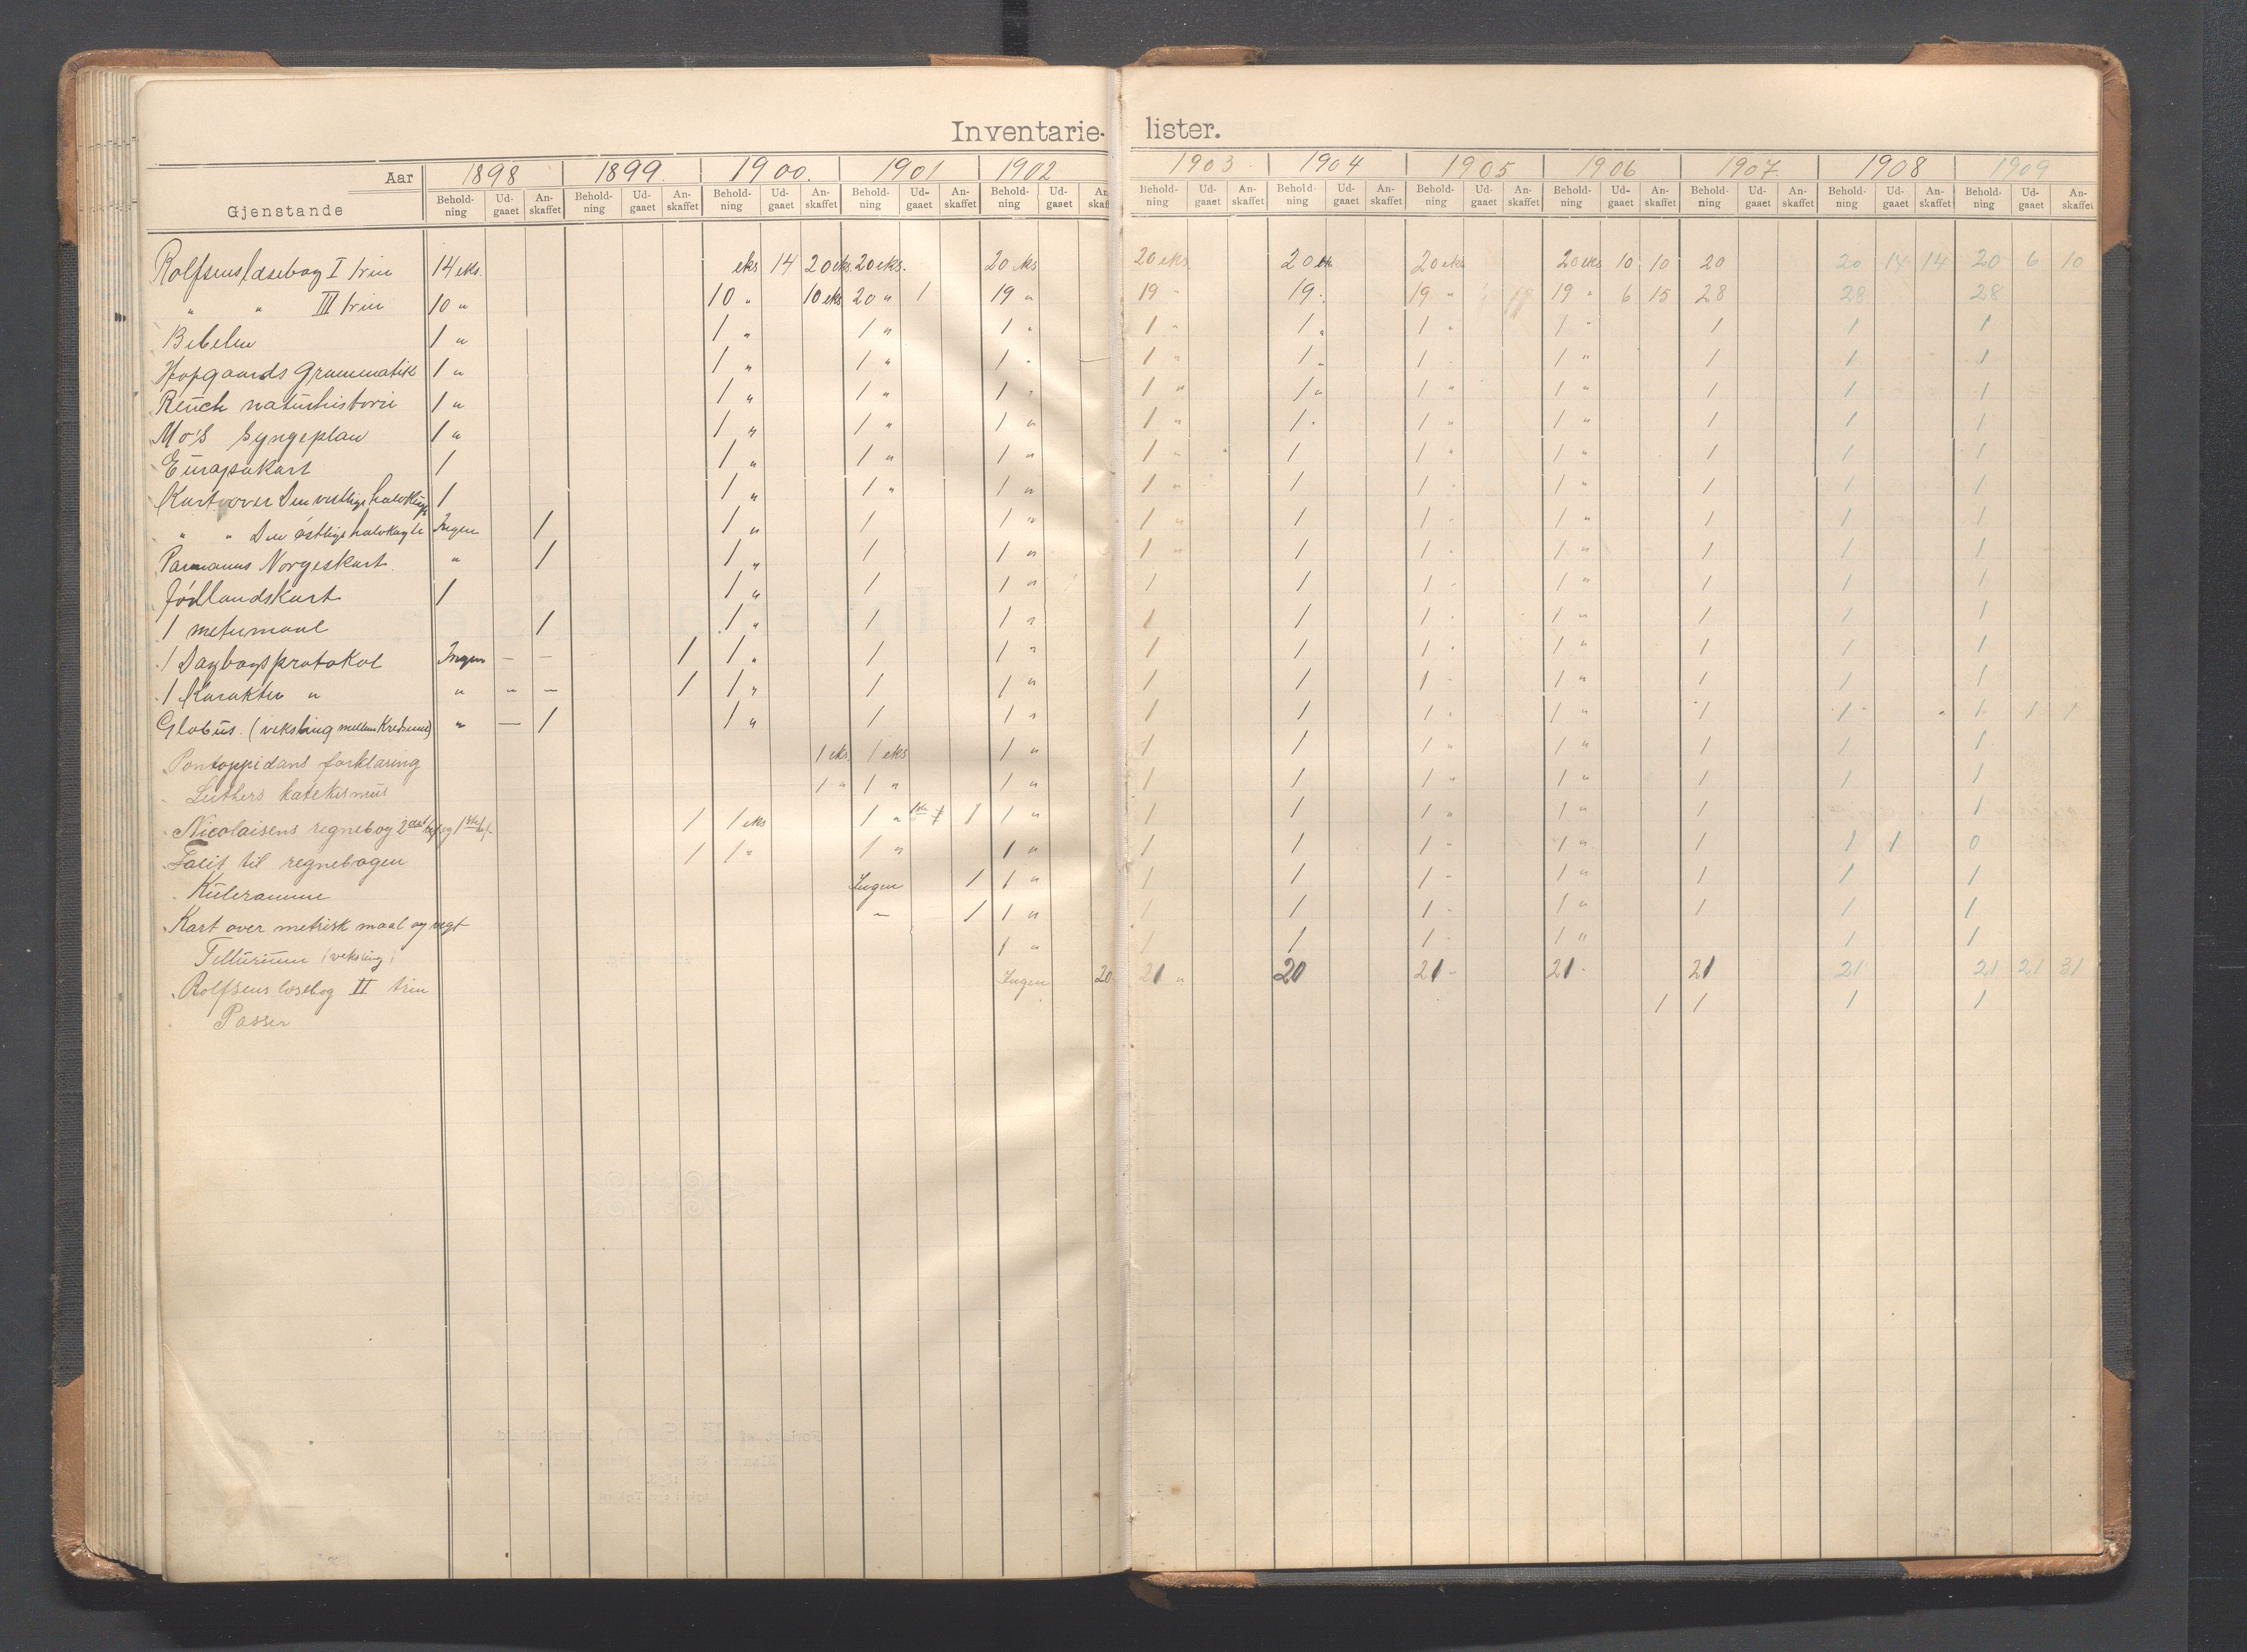 Inventarie- lister.
Aar 1898 1899. 1900. 1901 1902 1903 1904 1905 1906 1907 1908 1909
Gjenstande Behold-ning Ud-gaaet An-skaffet Behold-ning Ud-gaaet An-skaffet Behold-ning Ud-gaaet An-skaffet Behold-ning Ud-gaaet An-skaffet Behold-ning Ud-gaaet An-skaff Behold-ning Ud-gaaet An-skaffet Behold-ning Ud-gaaet An-skaffet Behold-ning Ud-gaaet An-skaffet Behold-ning Ud-gaaet An-skaffet Behold-ning Ud-gaaet An-skaffet Behold-ning Ud-gaaet An-skaffet Behold-ning Ud-gaaet An-skaffet
Rolfsens læsebog I trin 14 eks. eks 14 20 eks. 20 eks. 20 eks 20 eks. 20 eks 20 eks 20 eks 10 10 20 20 14 14 20 6 10
" " III trin 10 " 10 " 10 eks 20 " 1 19 " 19 " 19 " 19 " 19 " 6 15 28 28 28
Bibelen 1 " 1 " 1 " 1 " 1 " 1 " 1 " 1 " 1 1 1
Hofgaards Grammatik 1 " 1 " 1 " 1 " 1 " 1 " 1 " 1 " 1 1 1
Reuch naturhistorie 1 " 1 " 1 " 1 " 1 " 1 " 1 " 1 " 1 1 1
Mo's Syngeplan 1 " 1 " 1 " 1 " 1 " 1 " 1 " 1 " 1 1 1
Europakart 1 1 " 1 " 1 " 1 " 1 1 " 1 " 1 1 1
Kart over Den vestlige halvkugle 1 1 " 1 " 1 " 1 " 1 1 " 1 " 1 1 1
" " Den østlige halvkugle Ingen 1 1 " 1 1 " 1 " 1 1 " 1 " 1 1 1
Norgeskart. " 1 1 " 1 1 " 1 " 1 1 " 1 " 1 1 1
Jødlandskart 1 1 " 1 1 " 1 1 1 " 1 " 1 1 1
1 metermaal 1 1 " 1 1 " 1 1 1 " 1 " 1 1 1
1 Dagbogsprotokol Ingen — — 1 1 " 1 1 " 1 1 1 " 1 " 1 1 1
1 Karakter " " " — 1 1 " 1 1 " 1 1 1 " 1 " 1 1 1
Globus. (veksling mellem Kredsene) " — 1 1 " 1 1 " 1 1 1 " 1 " 1 1 1 1 1
Pontoppidans forklaring 1 eks. 1 eks 1 " 1 1 1 " 1 " 1 1 1
Luthers katekismus 1 " 1 " 1 " 1 1 1 " 1 " 1 1 1
Nicolaisens regnebog 2det hef. og 1ste hef. 1 1 eks 1 " 1ste 1 1 1 " 1 1 1 " 1 " 1
Facit til regnebogen 1 1 " 1 " 1 " 1 1 1 " 1 " 1 1 1 0
Kuleramme Ingen 1 1 " 1 1 1 " 1 " 1 1 1
Kart over metrisk maal og vegt — 1 1 " 1 1 1 " 1 " 1 1 1
Tellurium (veksling) 1 " 1 1 1 " 1 " 1 1
Rolfsens læsebog II trin Ingen 20 21 " 20 21 " 21 " 21 21 21 21 31
Passer 1 1 1 1